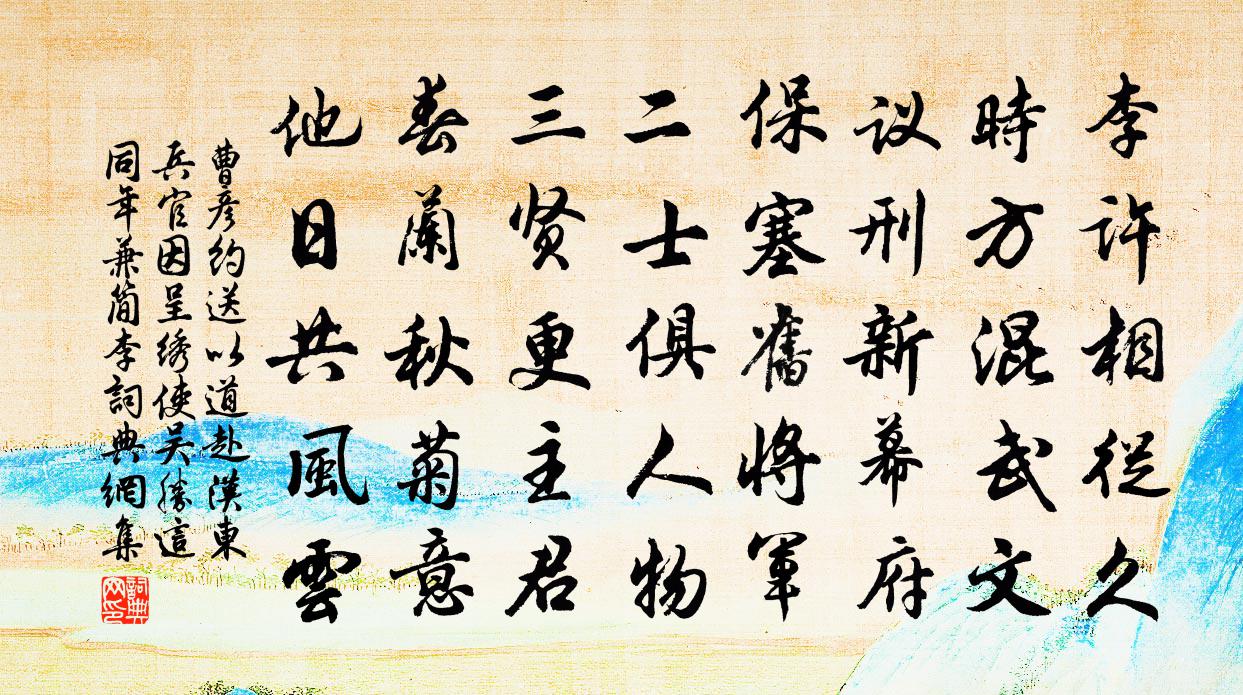 李許相從久
時方混武文
议刑新幕府
保塞舊將軍
二士俱人物
三贤更主君
春蘭秋菊意
他日共風雲
曹彦約送以道赴漢東
兵官因呈绣使吴勝這
同年兼簡李詞典網集
詞典网印